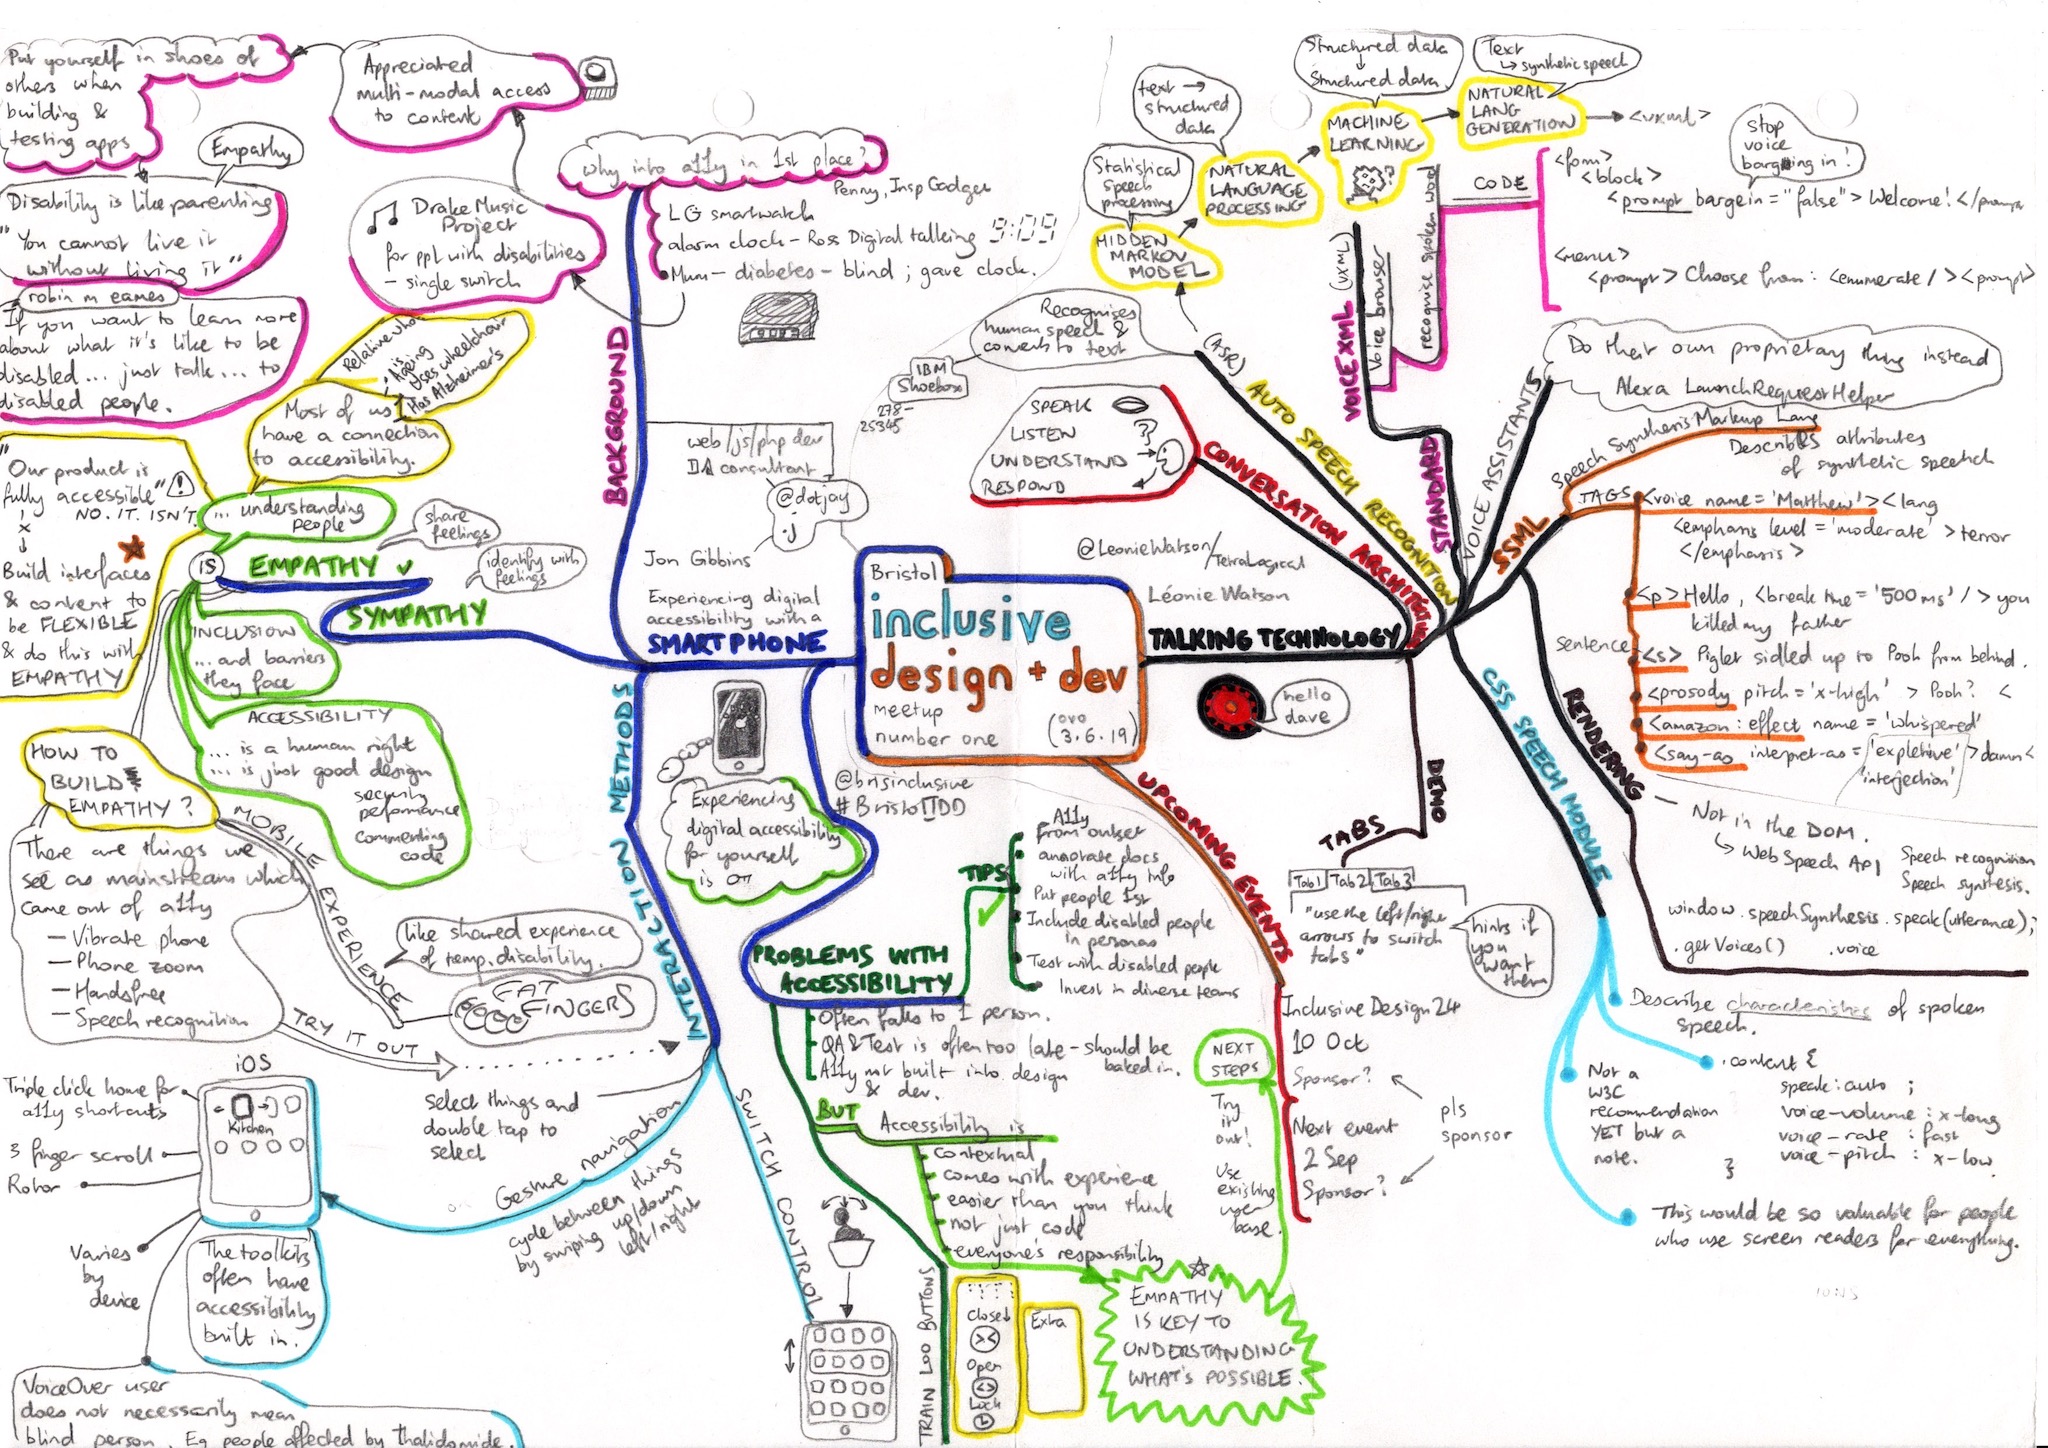 Bristol
inclusive
design + dev
meetup
number one
(ovo
3.6.19)
@brisinclusive
#BristolIDD
Jon Gibbins
Experiencing digital
accessibility with a
SMARTPHONE
@dotjay
web/js/php dev
DA consultant
BACKGROUND
Why into a11y in 1st place?
Penny, Insp Gadget
LG smartwatch
alarm clock - Ross Digital talking 9:09
Mum - diabetes - blind ; gave clock.
Drake Music
Project
for ppl with disabilities
- single switch
Appreciated
multi-modal access
to content
Put yourself in shoes of
others when
building &
testing apps
Empathy
Disability is like parenting
"You cannot live it
without living it"
robin m eames
If you want to learn more
about what it's like to be
disabled... just talk... to
disabled people.
Relative who
is
Ageing
Uses wheelchair
Has Alzheimer's
Most of us
have a connection
to accessibility.
"Our product is
fully accessible"
NO. IT. ISN'T.
x
Build interfaces
& content to
be FLEXIBLE
& do this with
EMPATHY
... understanding
people
IS
EMPATHY
SYMPATHY
share
feelings
identify with
feelings
INCLUSION
... and barriers
they face
ACCESSIBILITY
... is a human right
... is just good design
security
performance
commenting
code
HOW TO
BUILD
EMPATHY?
There are things we
see as mainstream which
came out of a11y
- Vibrate phone
- Phone zoom
- Handsfree
- Speech recognition
MOBILE EXPERIENCE
like shared experience
of temp. disability.
FAT
FINGERS
TRY IT OUT
INTERACTION METHODS
select things and
double tap to
select
Gesture navigation
cycle between things
by swiping up/down
left/right
iOS
Triple click home for
a11y shortcuts
Kitchen
3 finger scroll
Rotor
Varies
by
device
The toolkits
often have
accessibility
built in.
VoiceOver user
does not necessarily mean
blind person. Eg people affected by thalidomide.
SWITCH CONTROL
Experiencing
digital accessibility
for yourself
is
PROBLEMS WITH
ACCESSIBILITY
TIPS
A11y
from outset
annotate docs
with a11y info
Put people 1st
Include disabled people
in personas
Test with disabled people
Invest in diverse teams
Often falls to 1 person.
QA & Test is often too late - should be
baked in.
A11y not built into design
& dev.
BUT
Accessibility is
contextual
comes with experience
easier than you think
not just code
everyone's responsibility
TRAIN LOO BUTTONS
Close
> <
Open
< >
Lock
Extra
EMPATHY
IS KEY TO
UNDERSTANDING
WHAT'S POSSIBLE.
NEXT
STEPS
Try
it
out!
Use
existing
user
base.
UPCOMING EVENTS
Inclusive Design 24
10 Oct
Sponsor?
Next event
2 Sep
Sponsor?
pls
sponsor
@LeonieWatson/
TetraLogical
Léonie Watson
TALKING TECHNOLOGY
hello
dave
CONVERSATION ARCHITECTURE
SPEAK
LISTEN
UNDERSTAND
RESPOND
AUTO SPEECH RECOGNITION
(ASR)
Recognises
human speech &
converts to text
IBM
Shoebox
HIDDEN
MARKOV
MODEL
Statistical
speech
processing
NATURAL
LANGUAGE
PROCESSING
text →
structured
data
MACHINE
LEARNING
Structured data
↓
Structured data
NATURAL
LANG
GENERATION
Text
↳ synthetic speech
<vxml>
STANDARD
VOICEXML
(VXML)
Voice browser
recognise spoken word
CODE
<form>
<block>
<prompt bargein="false"> Welcome! </prompt
stop
voice
barging in!
<menu>
<prompt> Choose from: <enumerate/><prompt>
VOICE ASSISTANTS
Do their own proprietary thing instead
Alexa LaunchRequestHelper
SSML
Speech Synthesis Markup Lang
Describes attributes
of synthetic speech
TAGS
<voice name='Matthew'><lang
<emphasis level='moderate'>terror
</emphasis>
<p>Hello, <break time='500ms'/> you
killed my father
sentence
<s> Piglet sidled up to Pooh from behind.
<prosody pitch='x-high' > Pooh? <
<amazon:effect name='whispered'
<say-as interpret-as='expletive' >damn<
'interjection'
RENDERING
Not in the DOM.
↳ Web Speech API
Speech recognition
Speech synthesis.
window.speechSynthesis.speak(utterance);
.getVoices()
.voice
CSS SPEECH MODULE
Describe characteristics of spoken
speech.
.content {
speak: auto ;
voice-volume : x-long
voice-rate : fast
voice-pitch : x-low.
}
Not a
W3C
recommendation
YET but a
note.
This would be so valuable for people
who use screen readers for everything.
DEMO
TABS
Tab1 Tab2 Tab3
"use the left/right
arrows to switch
tabs"
hints if
you
want
them